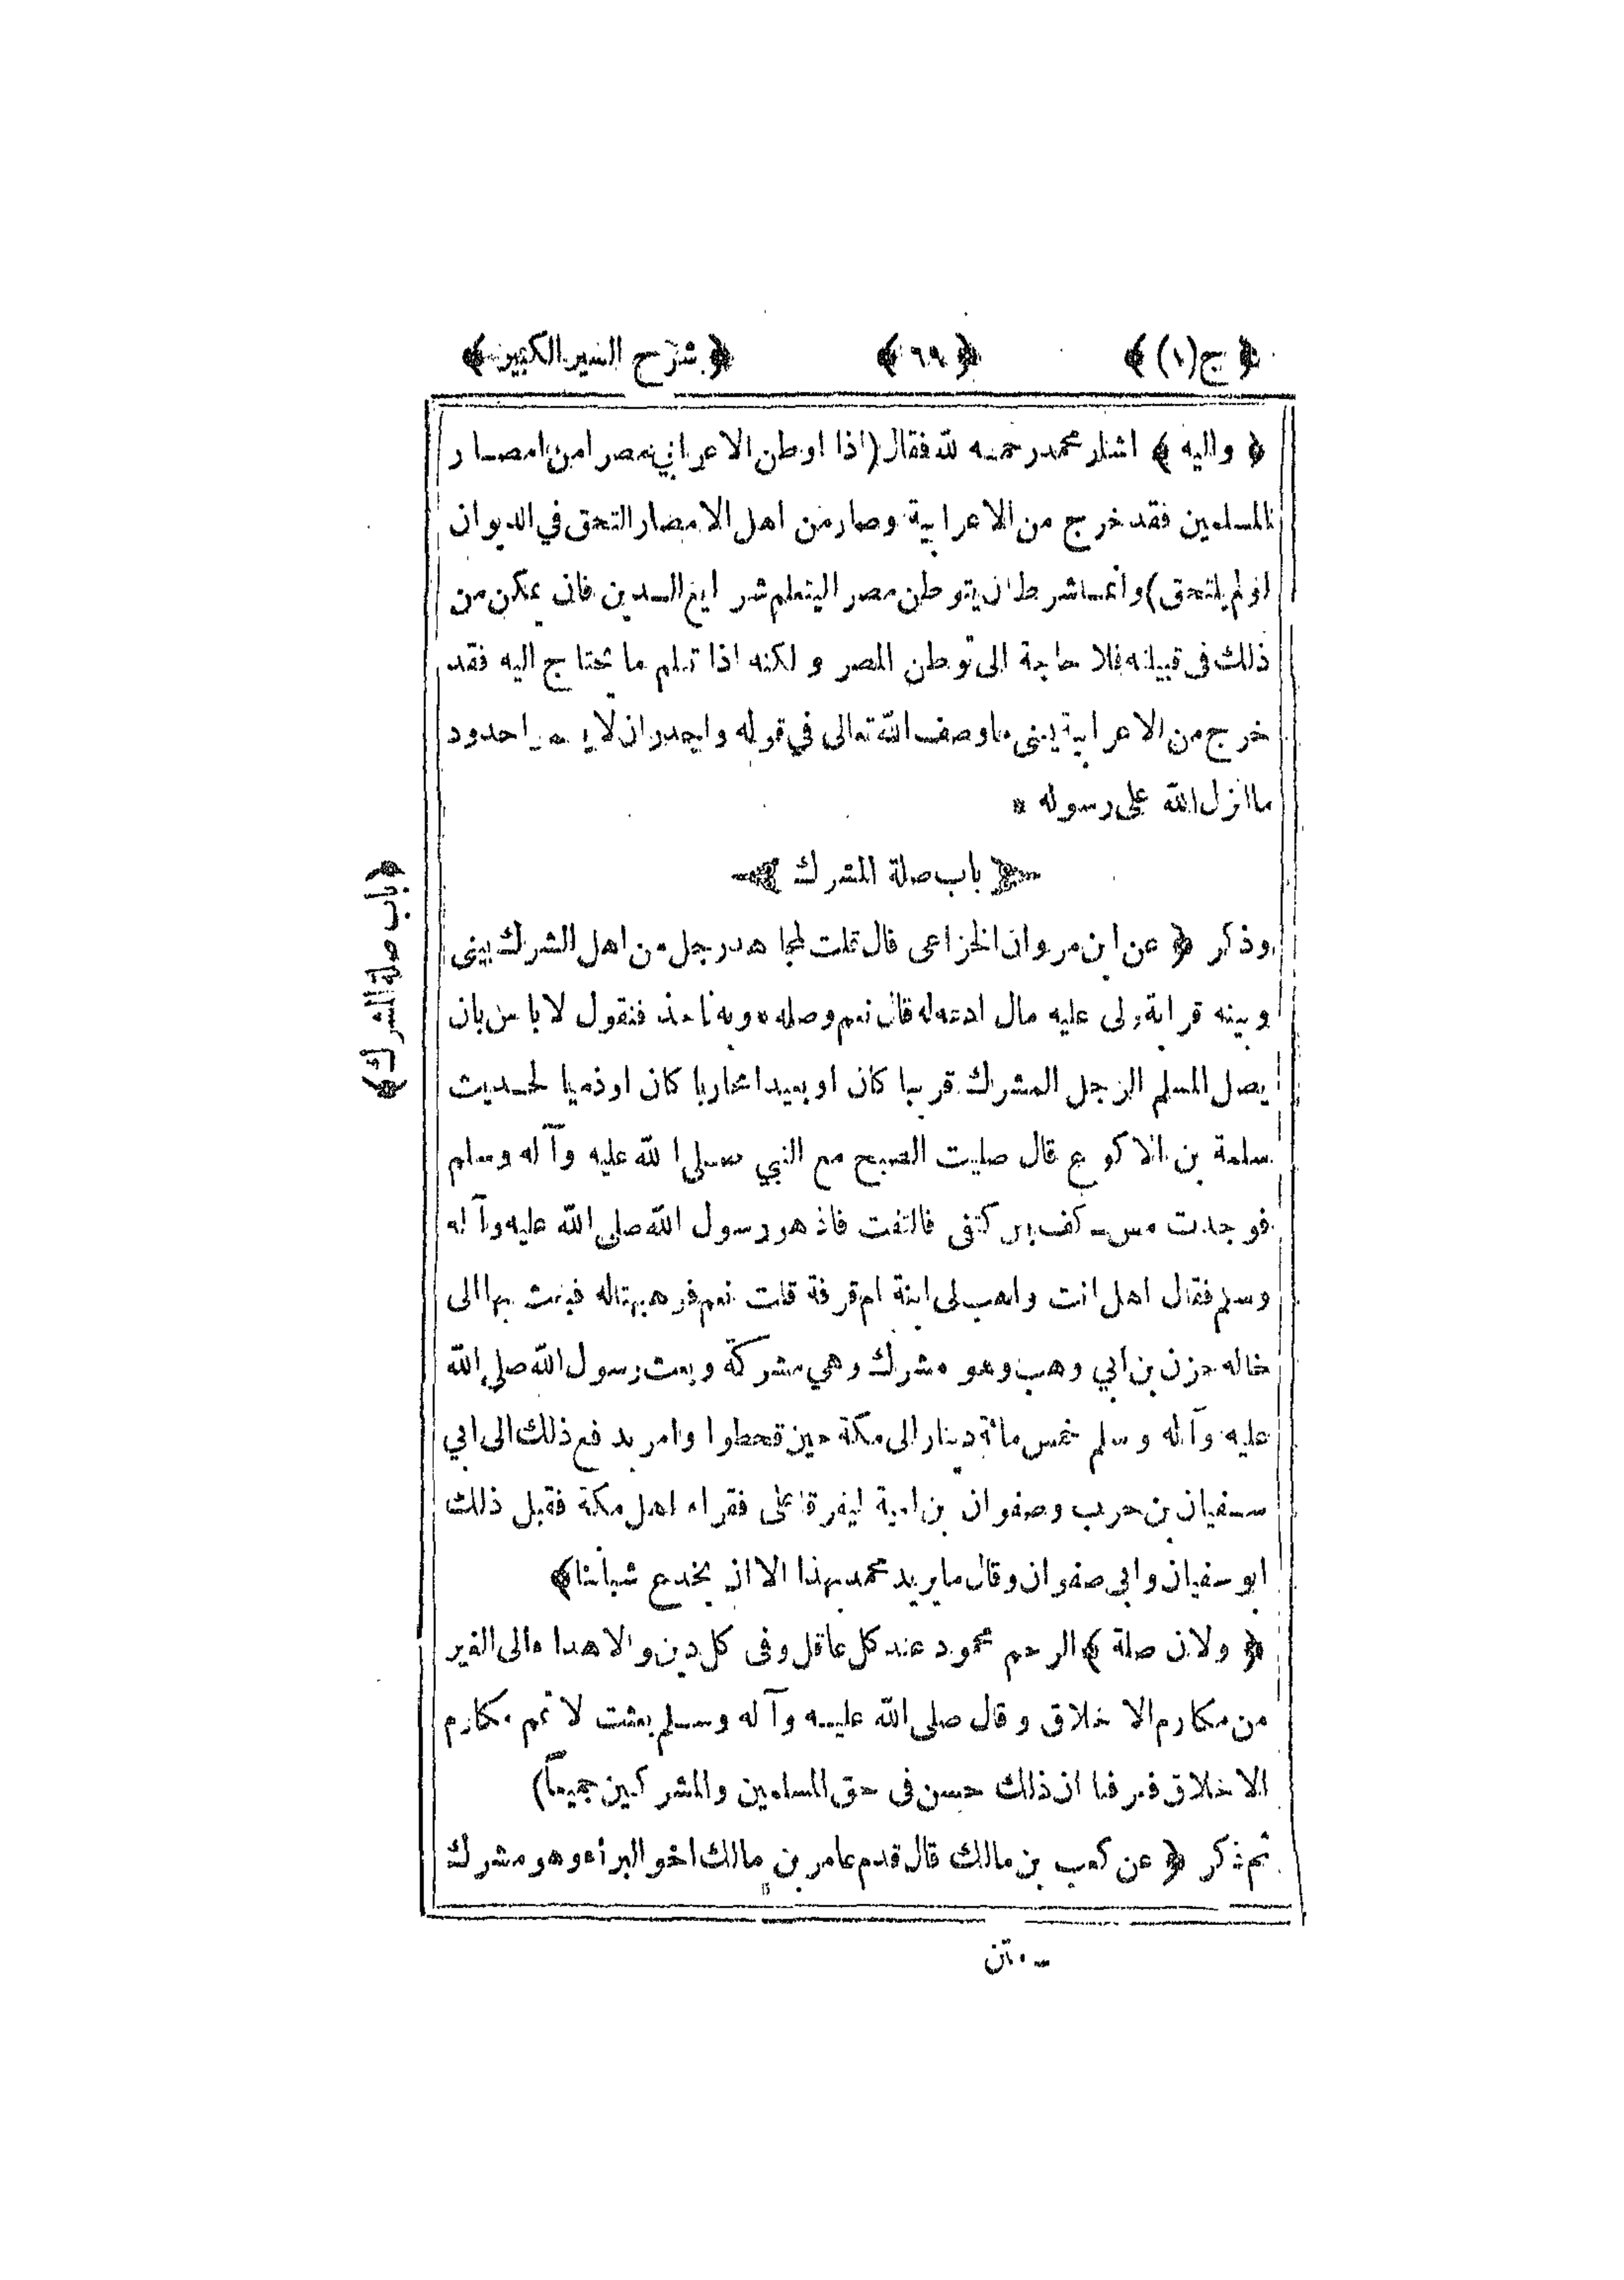 ﴿ ج (١) ﴾ ﴿ ٦٩ ﴾ ﴿ شرح السير الكبير ﴾
﴿ واليه ﴾ اشار محمد رحمه لله فقال (اذا اوطن الاعرابي مصرا من امصار
المسلمين فقد خرج من الاعرابية وصار من اهل الامصار التحق في الديوان
اولم يلتحق) وانما شرط ان يتوطن مصرا ليتعلم شرايع الدين فان تمكن من
ذلك في قبيلته فلا حاجة الى توطن المصر ولكنه اذا تعلم ما يحتاج اليه فقد
خرج من الاعرابية يعنى ما وصف الله تعالى في قوله واجدر ان لا يعلموا حدود
ما انزل الله على رسوله *
﴿ باب صلة المشرك ﴾
﴿باب صلة المشرك﴾
وذكر ﴿ عن ابن مروان الخزاعى قال قلت لمجاهد رجل من اهل الشرك بينى
وبينه قرابة ولى عليه مال ادعه له قال نعم وصله * وبه ناخذ فنقول لا باس بان
يصل المسلم الرجل المشرك قريبا كان او بعيدا محاربا كان او ذميا لحديث
سلمة بن الاكوع قال صليت الصبح مع النبي صلى الله عليه وآله وسلم
فوجدت مس كف بين كتفى فالتفت فاذ هو رسول الله صلى الله عليه وآله
وسلم فقال اهل انت واهب لى ابنة ام قرفة قلت نعم فوهبتها له فبعث بها الى
خاله حزن بن ابي وهب وهو مشرك وهي مشركة وبعث رسول الله صلى الله
عليه وآله وسلم خمس مائة دينار الى مكة حين قحطوا وامر بدفع ذلك الى ابي
سفيان بن حرب وصفوان بن امية ليفرقا على فقراء اهل مكة فقبل ذلك
ابو سفيان وابى صفوان وقال ما يريد محمد بهذا الا ان يخدع شباننا﴾
﴿ ولان صلة ﴾ الرحم محمود عند كل عاقل وفى كل دين والاهداء الى الغير
من مكارم الاخلاق وقال صلى الله عليه وآله وسلم بعثت لا تمم مكارم
الاخلاق فعرفنا ان ذلك حسن فى حق المسلمين والمشركين جميعاً)
ثم ذكر ﴿ عن كعب بن مالك قال قدم عامر بن مالك اخو البراء وهو مشرك